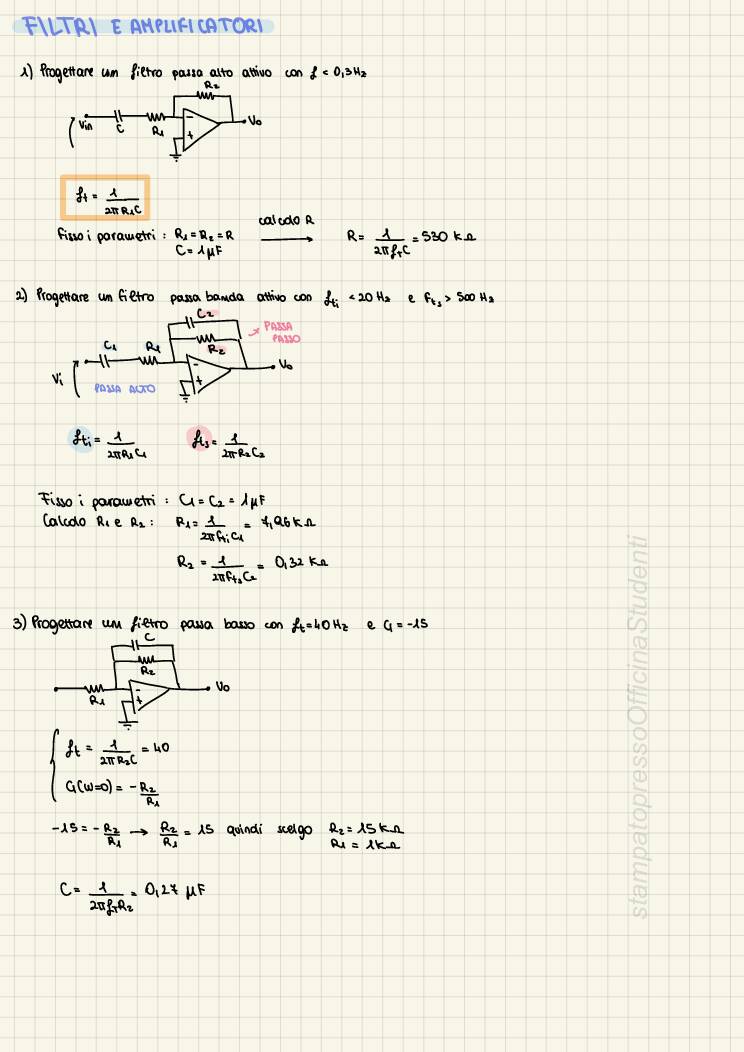 FILTRI E AMPLIFICATORI
1) Progettare un filtro passa alto attivo con f < 0,3 Hz
R2
Vin
C
R1
-
+
Vo
ft = 1/(2πR1C)
Fisso i parametri : R1 = R2 = R
C = 1 μF
calcolo R
R = 1/(2πfTC) = 530 kΩ
2) Progettare un filtro passa banda attivo con fti < 20 Hz e fts > 500 Hz
C2
PASSA
BASSO
C1
R1
R2
-
+
Vo
Vi
PASSA ALTO
fti = 1/(2πR1C1)
fts = 1/(2πR2C2)
Fisso i parametri : C1 = C2 = 1 μF
Calcolo R1 e R2 : R1 = 1/(2πftiC1) = 7,96 kΩ
R2 = 1/(2πftsC2) = 0,32 kΩ
3) Progettare un filtro passa basso con ft = 40 Hz e G = -15
C
R2
R1
-
+
Vo
ft = 1/(2πR2C) = 40
G(ω=0) = - R2/R1
-15 = - R2/R1 → R2/R1 = 15 quindi scelgo R2 = 15 kΩ
R1 = 1 kΩ
C = 1/(2πfTR2) = 0,27 μF
stampatopressoOfficinaStudenti